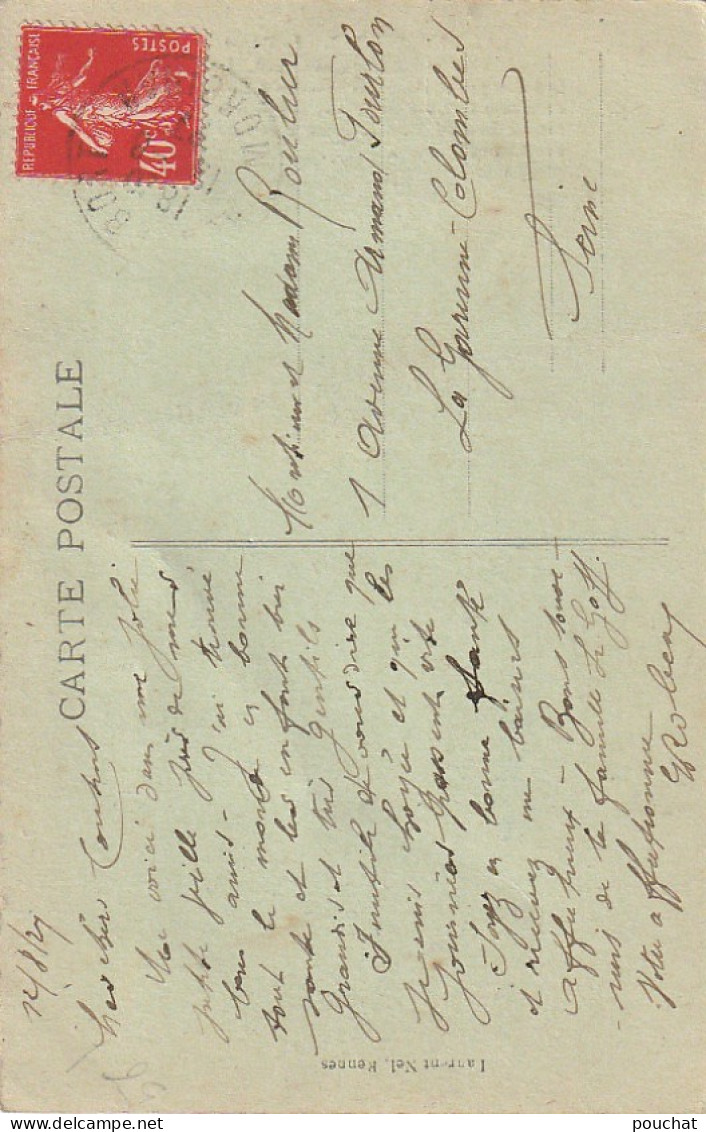 CARTE POSTALE
REPUBLIQUE FRANÇAISE
POSTES
40c
12/8/27
Mes chers Cousins
Me voici dans une jolie
petite ville près de mes
bons amis - J'ai trouvé
tout le monde en bonne
santé et les enfants bien
grandis et très gentils
Inutile de vous dire que
je suis choyée et que les
journées passent vite
Soyez en bonne santé
et recevez mes baisers
affectueux - Bons souve-
-nirs de la famille Le Goff.
Votre affectionnée
Monsieur et Madame Rouher
1 Avenue Armand Tourlon
La Garenne-Colombes
Seine
Laurent Nel, Rennes
pouchat